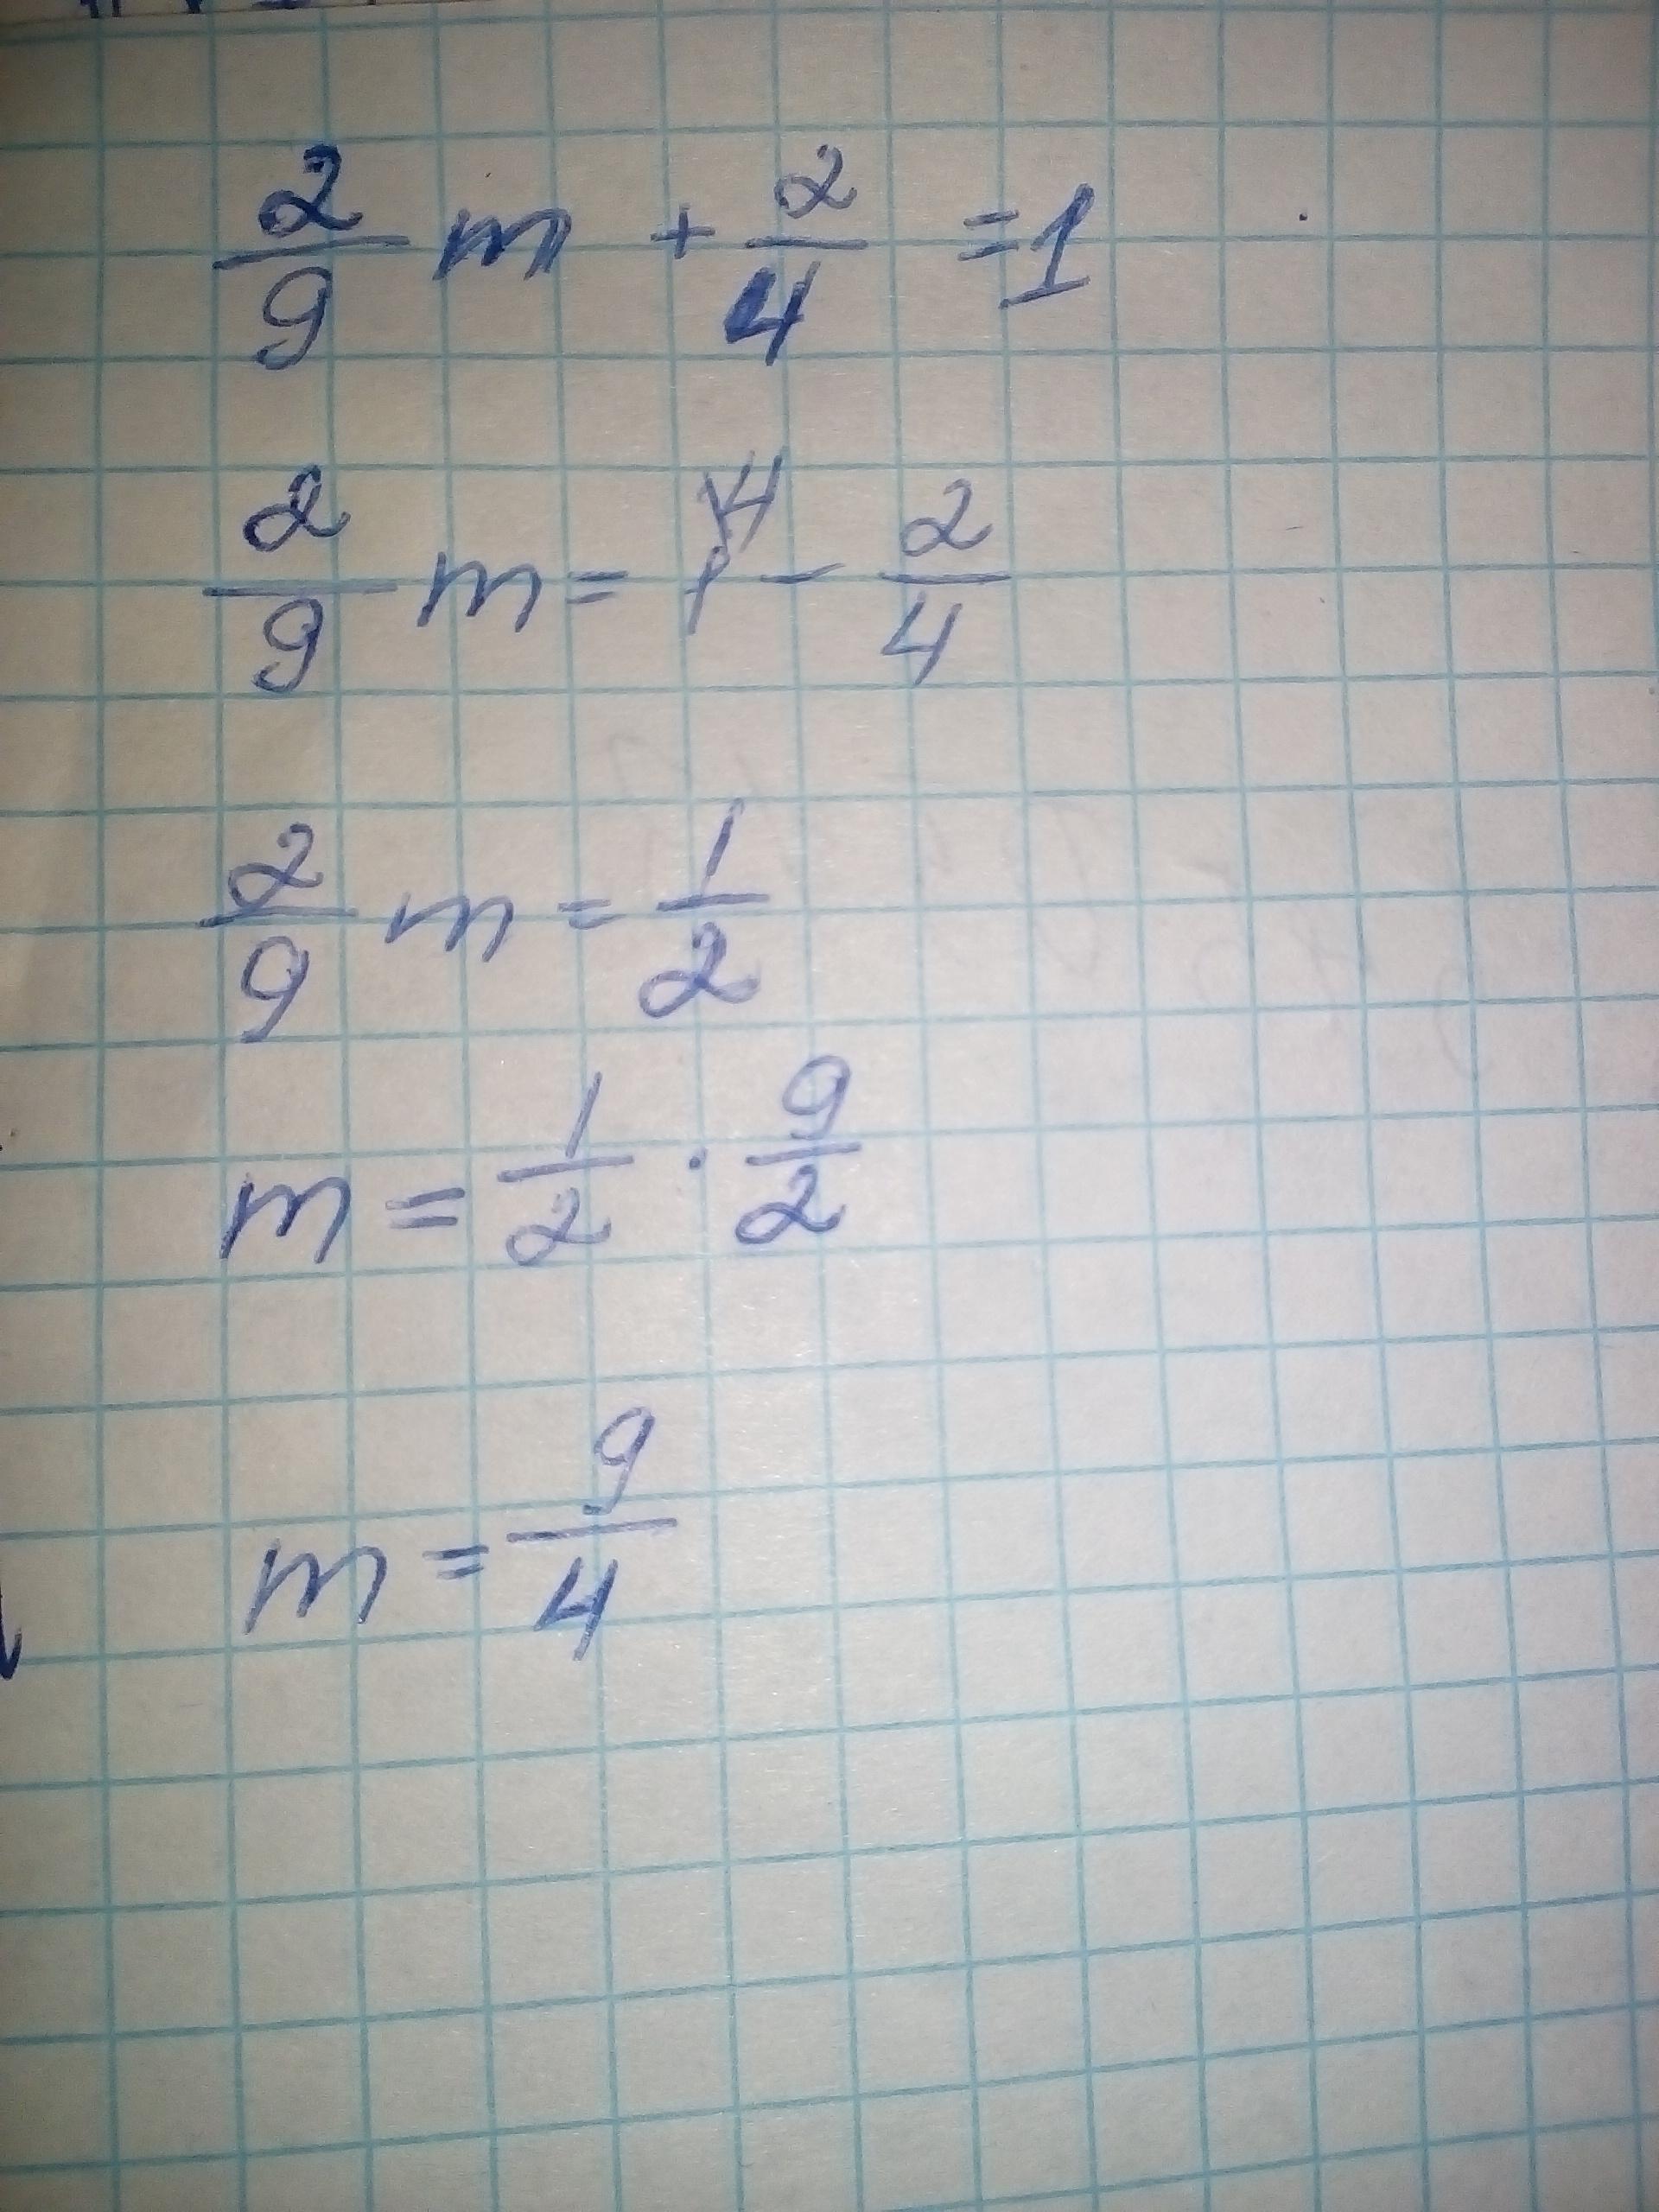 2/9 m + 2/4 = 1
2/9 m = 1 - 2/4
2/9 m = 1/2
m = 1/2 · 9/2
m = 9/4